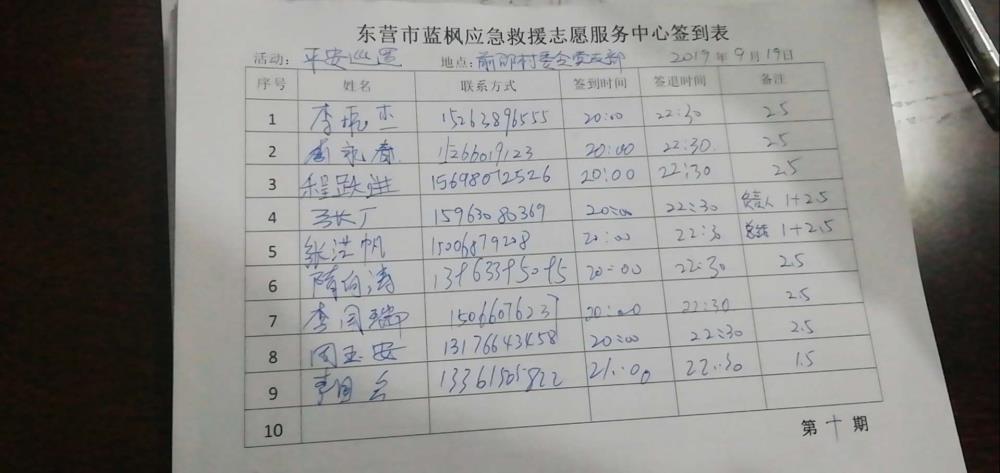 东营市蓝枫应急救援志愿服务中心签到表
活动: 平安巡逻 地点: 前邵村委会党支部 2019年9月19日
序号 姓名 联系方式 签到时间 签退时间 备注
1 李振杰 15263896555 20:00 22:30 2.5
2 李永春 20:00 22:30 2.5
3 程跃进 15698072526 20:00 22:30 2.5
4 15963080369 20:00 22:30 负责人 1+2.5
5 张洪帆 15006879208 20:00 22:30 总结 1+2.5
6 隋向涛 20:00 22:30 2.5
7 李国瑞 15066076237 20:00 22:30 2.5
8 周玉安 13176643458 20:00 22:30 2.5
9 21:00 22:30 1.5
10
第十期